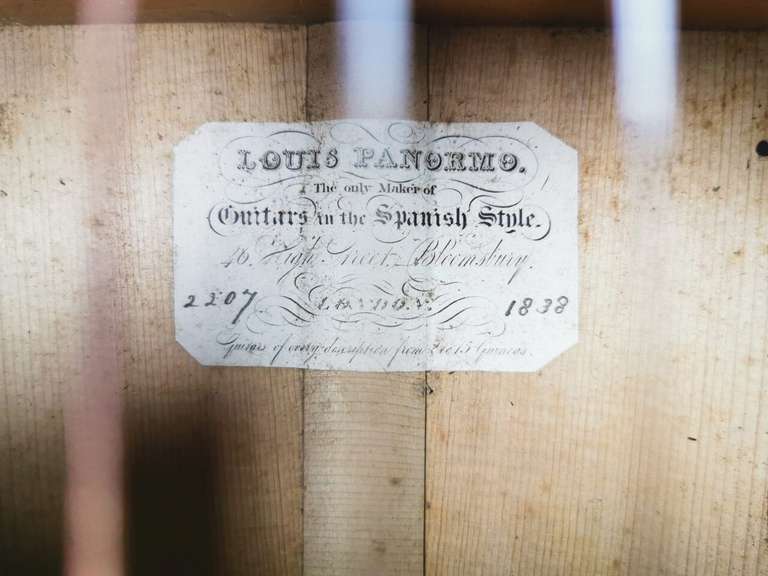 LOUIS PANORMO.
The only Maker of
Guitars in the Spanish Style.
46, High Street, Bloomsbury.
2207 LONDON. 1838
Guitars of every description from 2 to 15 Guineas.